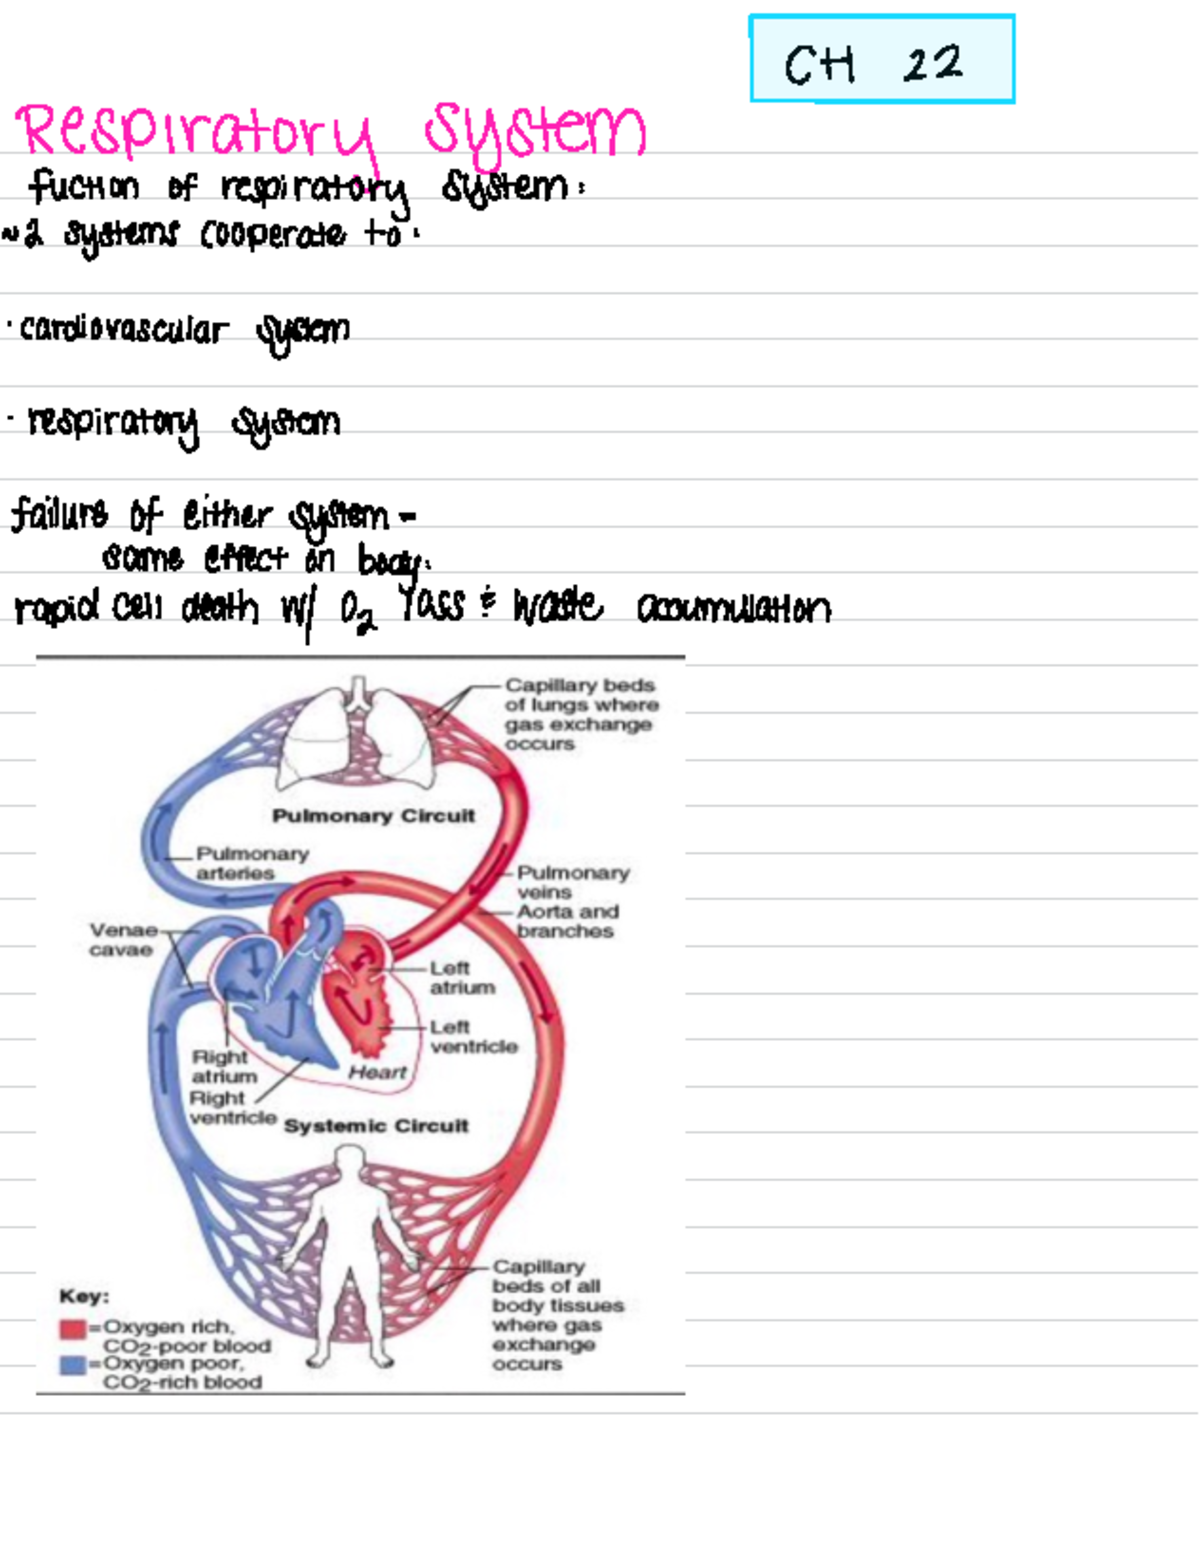 CH 22
Respiratory System
fuction of respiratory system:
~2 systems cooperate to:
· cardiovascular system
· respiratory system
failure of either system -
same effect on body:
rapid cell death w/ O2 loss & waste accumulation
Capillary beds
of lungs where
gas exchange
occurs
Pulmonary Circuit
Pulmonary
arteries
Pulmonary
veins
Aorta and
branches
Venae
cavae
Left
atrium
Left
ventricle
Right
atrium
Heart
Right
ventricle
Systemic Circuit
Capillary
beds of all
body tissues
where gas
exchange
occurs
Key:
=Oxygen rich,
CO2-poor blood
=Oxygen poor,
CO2-rich blood